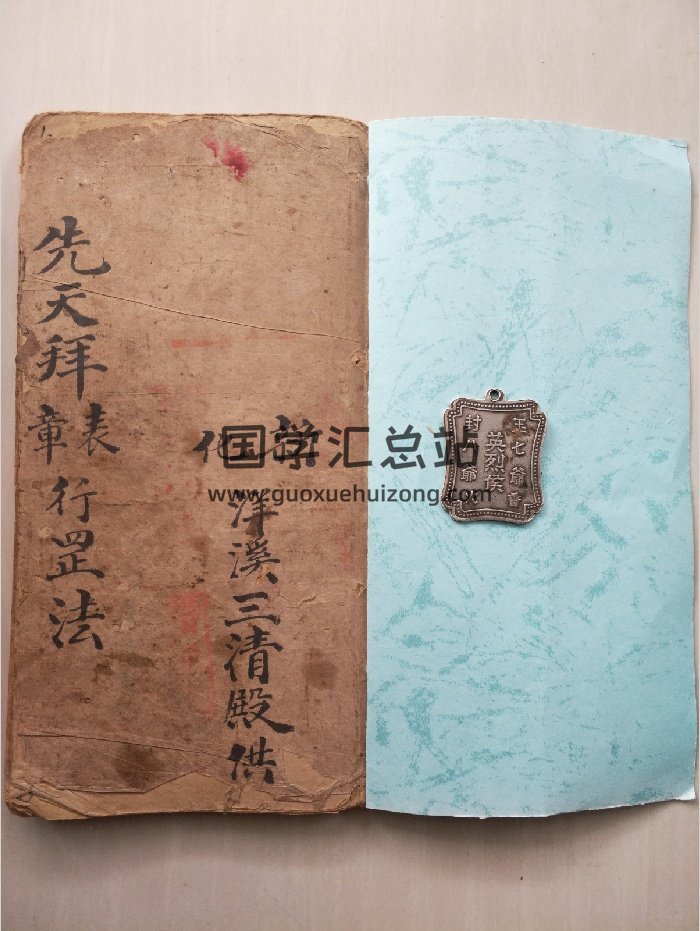 化
洋溪三清殿供
先天拜表章行罡法
英烈侯
国学汇总站
www.guoxuehuizong.com